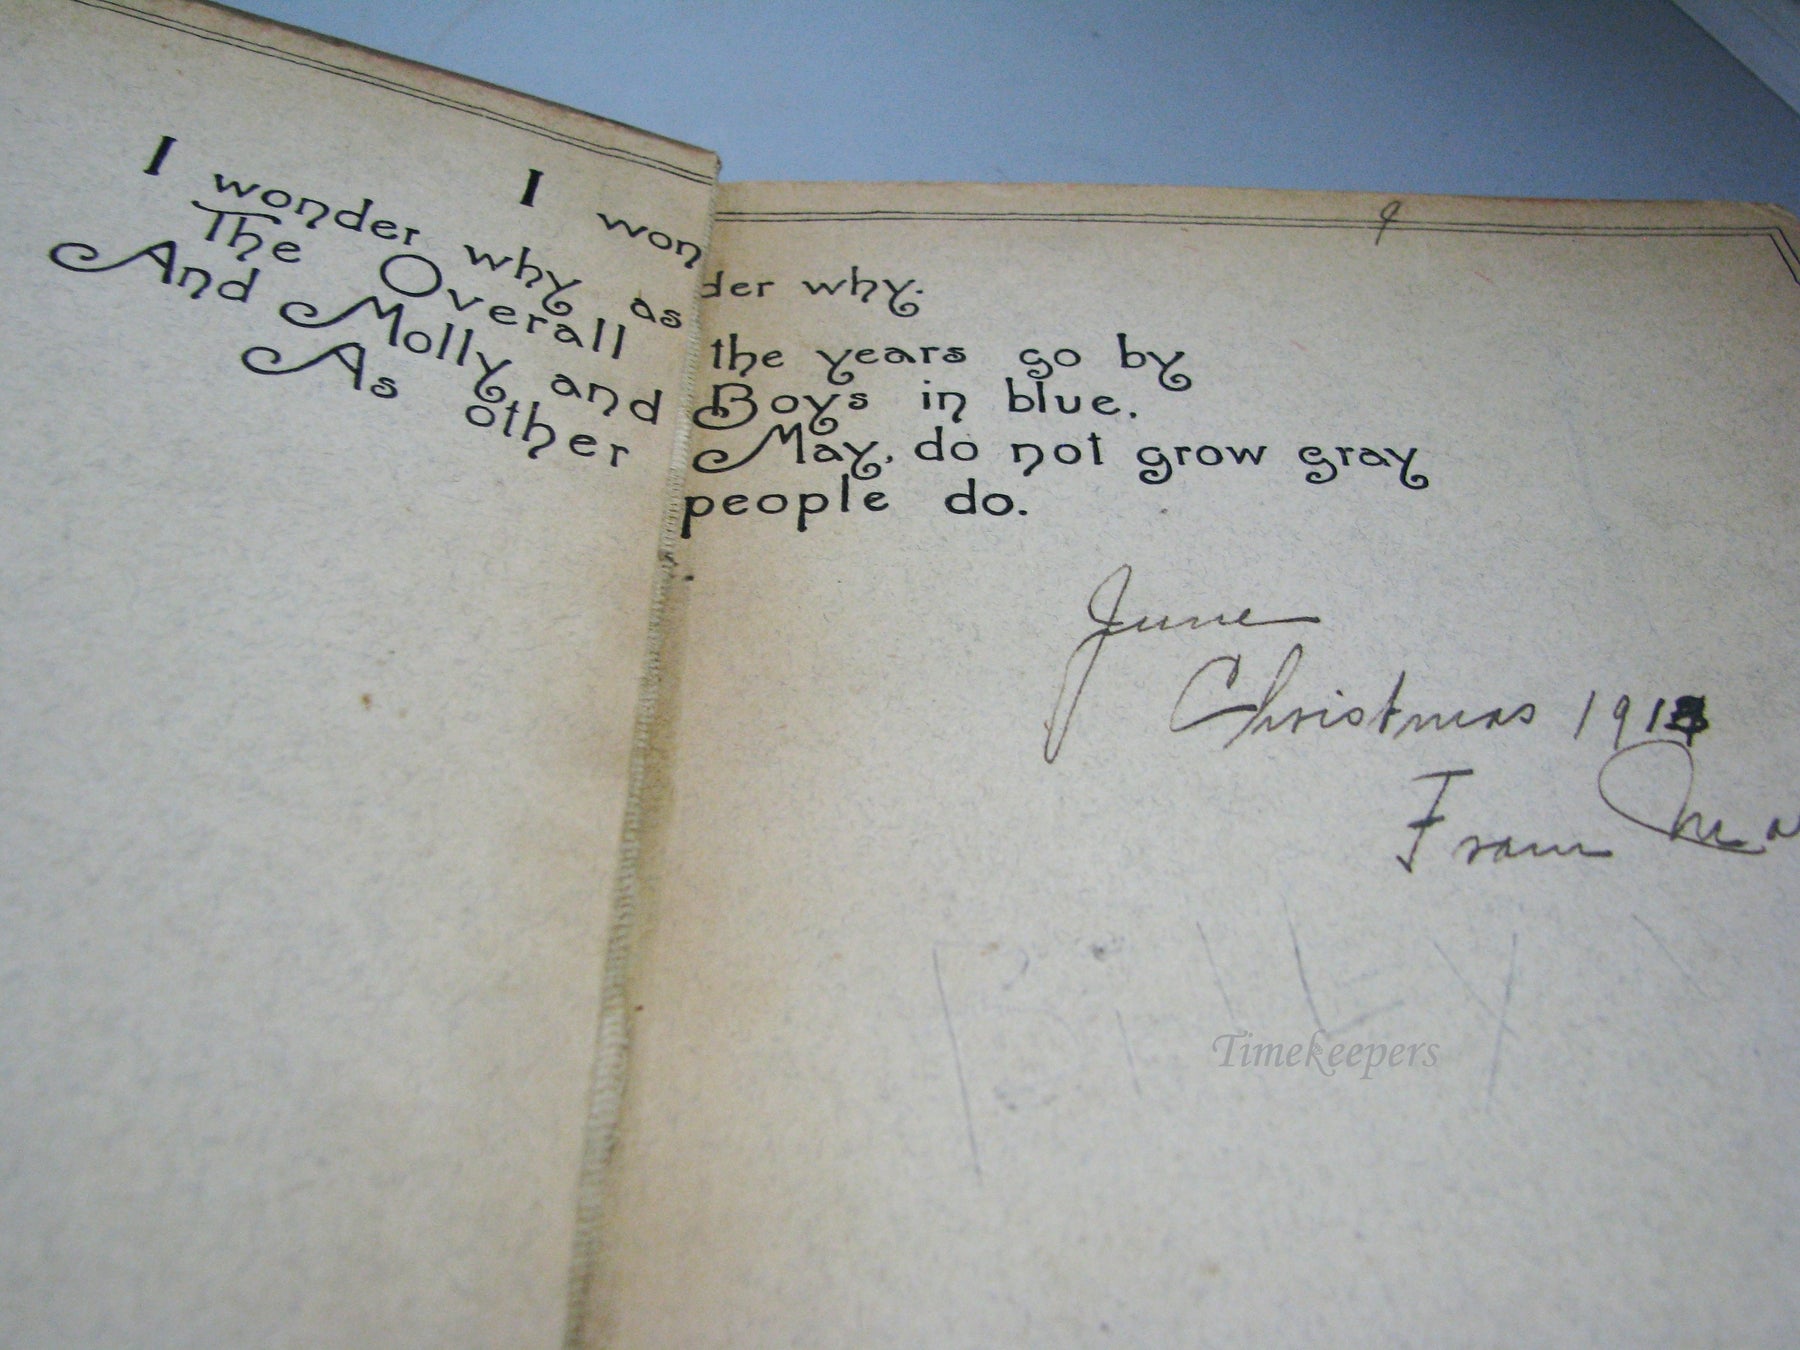 I wonder why.
I wonder why as the years go by
The Overall Boys in blue.
And Molly and May, do not grow gray
As other people do.
June
Christmas 191
From Ma
Timekeepers